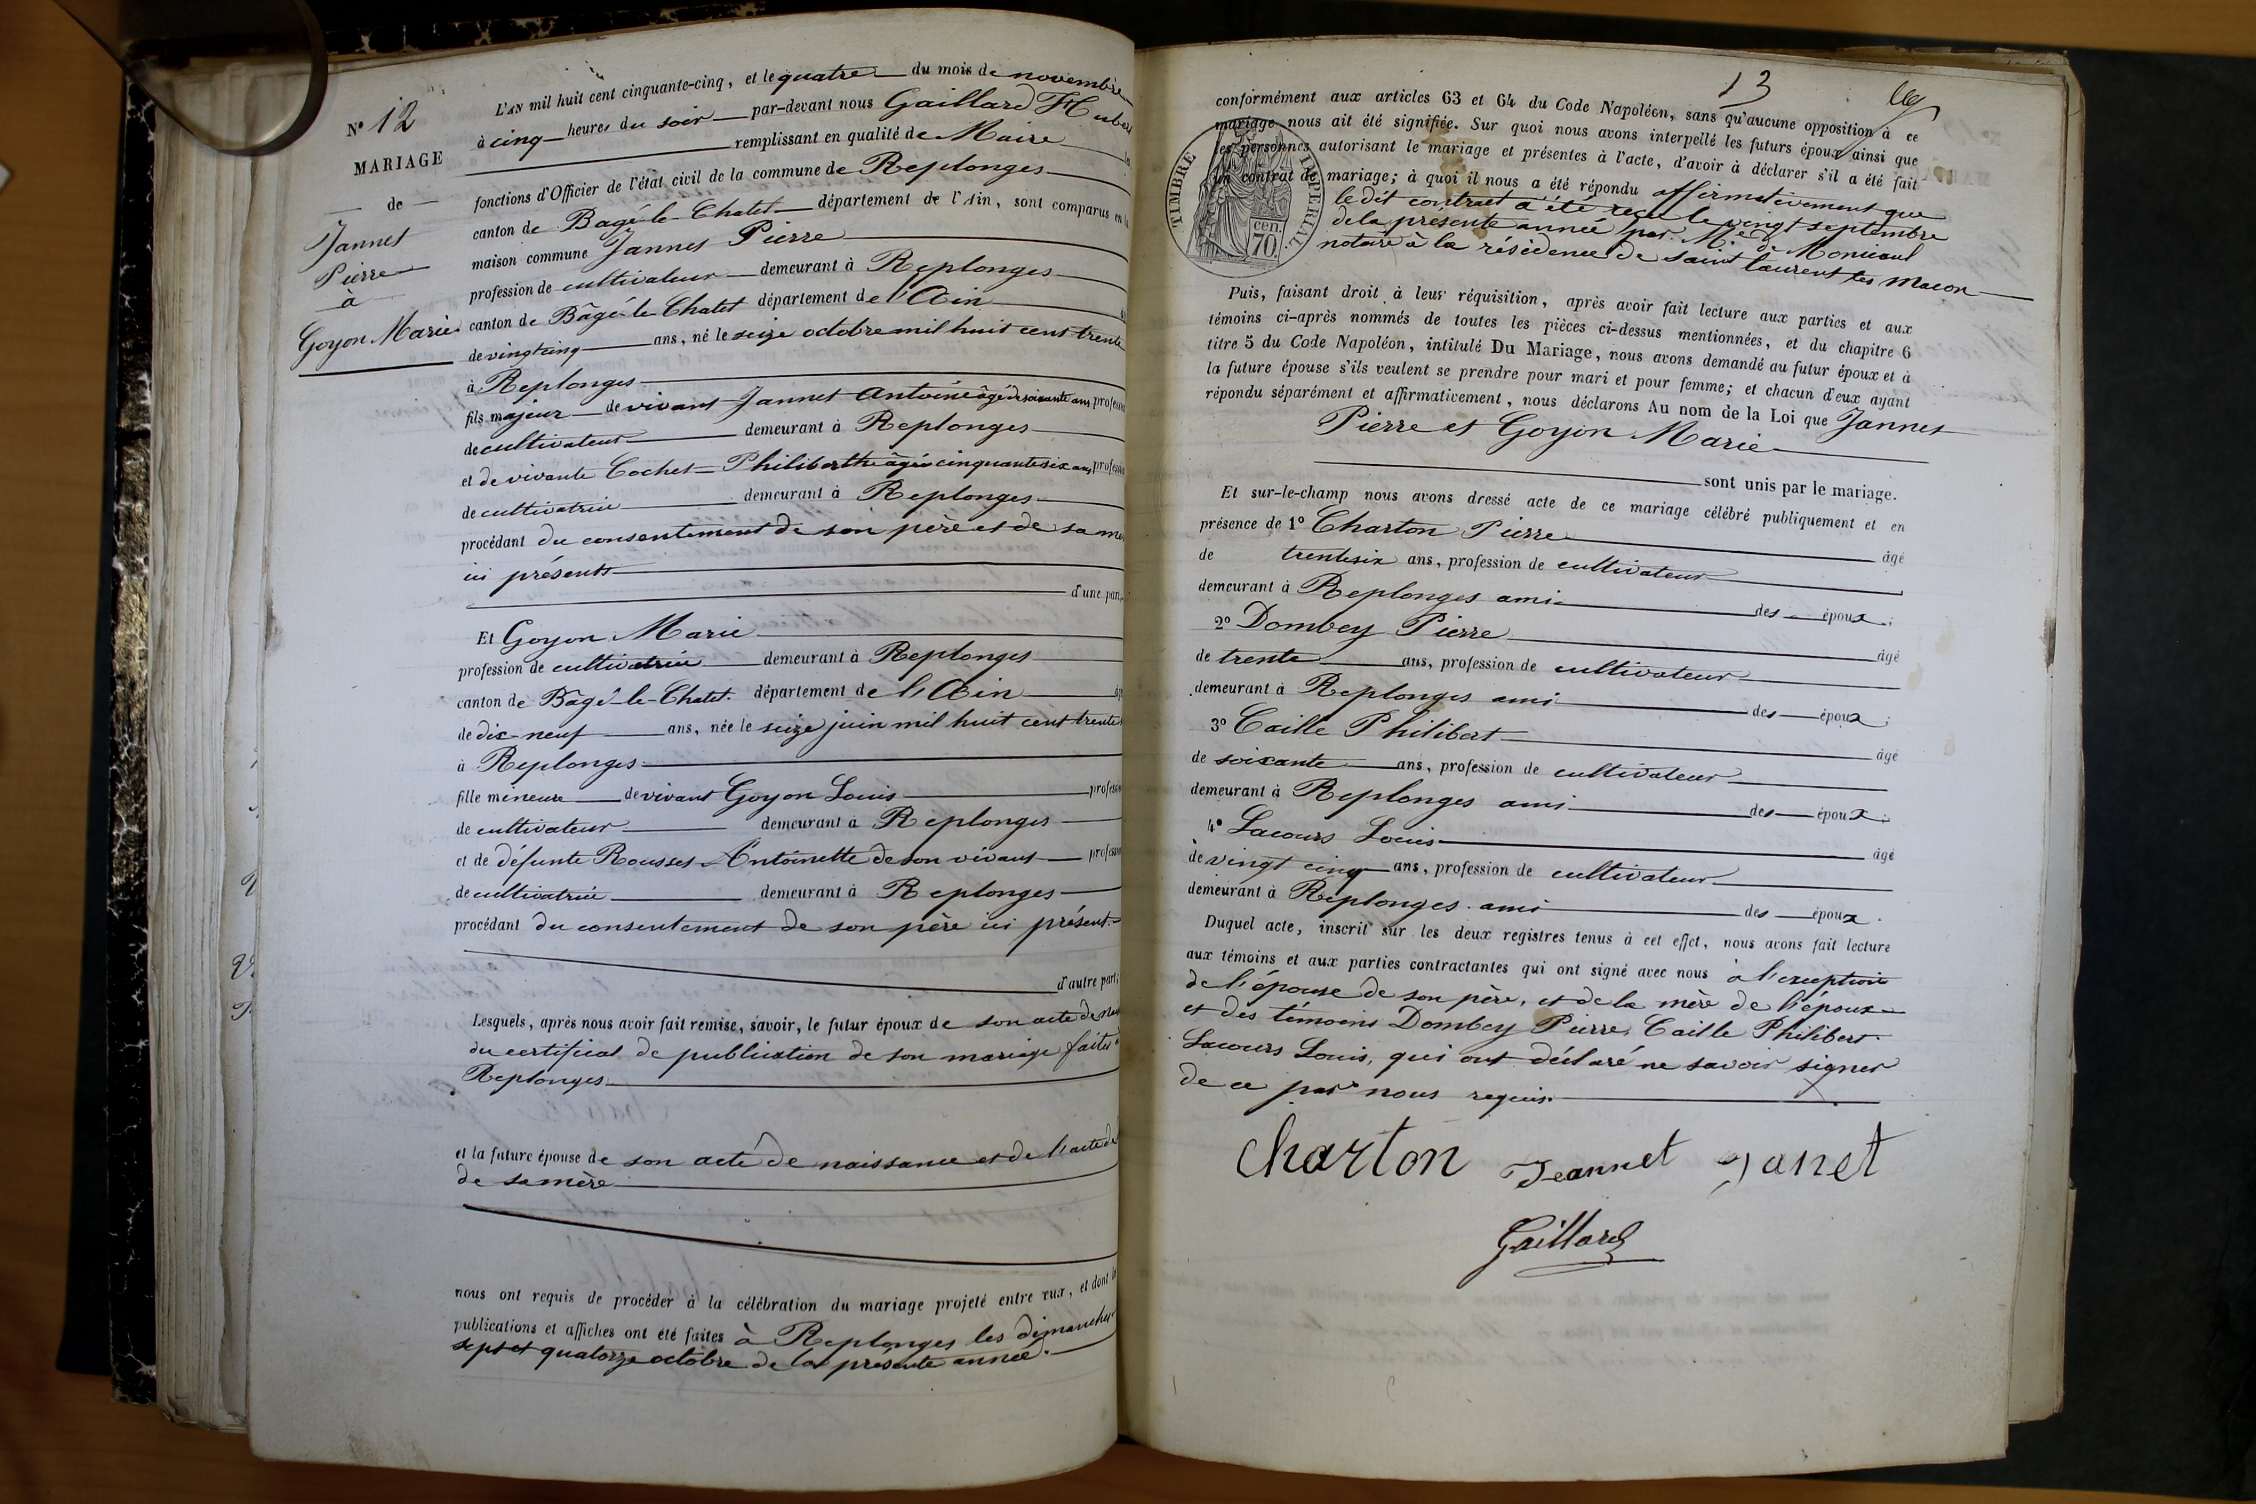 N° 12
MARIAGE
de
Jannet
Pierre
à
Goyon Marie
L'AN mil huit cent cinquante-cinq, et le quatre du mois de novembre
à cinq heures du soir par-devant nous Gaillard
remplissant en qualité de Maire
fonctions d'Officier de l'état civil de la commune de Replonges
canton de Bagé-le-Chatel département de l'Ain, sont comparus en la
maison commune Jannet Pierre
profession de cultivateur demeurant à Replonges
canton de Bagé-le-Chatel département de l'Ain
de vingt cinq ans, né le seize octobre mil huit cent trente
à Replonges
fils majeur de vivant Jannet Antoine âgé de soixante ans profession
de cultivateur demeurant à Replonges
et de vivante Cochet Philiberthe âgée cinquante six ans profession
de cultivatrice demeurant à Replonges
procédant du consentement de son père et de sa
ici présents
d'une part,
Et Goyon Marie
profession de cultivatrice demeurant à Replonges
canton de Bagé-le-Chatel département de l'Ain
de dix-neuf ans, née le seize juin mil huit cent trente
à Replonges
fille mineure de vivant Goyon Louis profession
de cultivateur demeurant à Replonges
et de défunte Rousset Antoinette de son vivant profession
de cultivatrice demeurant à Replonges
procédant du consentement de son père ici présent
d'autre part;
Lesquels, après nous avoir fait remise, savoir, le futur époux de son acte de
du certificat de publication de son mariage faites à
Replonges
et la future épouse de son acte de naissance et de l'acte de
de sa mère
nous ont requis de procéder à la célébration du mariage projeté entre eux, et dont les
publications et affiches ont été faites à Replonges les dimanches
sept et quatorze octobre de la présente année.
13
conformément aux articles 63 et 64 du Code Napoléon, sans qu'aucune opposition à ce
mariage nous ait été signifiée. Sur quoi nous avons interpellé les futurs époux ainsi que
les personnes autorisant le mariage et présentes à l'acte, d'avoir à déclarer s'il a été fait
un contrat de mariage; à quoi il nous a été répondu affirmativement que
TIMBRE IMPERIAL
70 cen.
le dit contrat a été reçu le vingt septembre
de la présente année par Me de
notaire à la résidence de saint laurent les macon
Puis, faisant droit à leur réquisition, après avoir fait lecture aux parties et aux
témoins ci-après nommés de toutes les pièces ci-dessus mentionnées, et du chapitre 6
titre 5 du Code Napoléon, intitulé Du Mariage, nous avons demandé au futur époux et à
la future épouse s'ils veulent se prendre pour mari et pour femme; et chacun d'eux ayant
répondu séparément et affirmativement, nous déclarons Au nom de la Loi que Jannet
Pierre et Goyon Marie
sont unis par le mariage.
Et sur-le-champ nous avons dressé acte de ce mariage célébré publiquement et en
présence de 1° Charton Pierre âgé
de trente six ans, profession de cultivateur
demeurant à Replonges ami des époux;
2° Dombey Pierre âgé
de trente ans, profession de cultivateur
demeurant à Replonges ami des époux;
3° Caille Philibert âgé
de soixante ans, profession de cultivateur
demeurant à Replonges ami des époux;
4° Lacours Louis âgé
de vingt cinq ans, profession de cultivateur
demeurant à Replonges ami des époux.
Duquel acte, inscrit sur les deux registres tenus à cet effet, nous avons fait lecture
aux témoins et aux parties contractantes qui ont signé avec nous à l'exception
de l'épouse de son père, et de la mère de l'époux
et des témoins Dombey Pierre, Caille Philibert
Lacours Louis, qui ont déclaré ne savoir signer
de ce par nous requis.
Charton Jeannet Janet
Gaillard